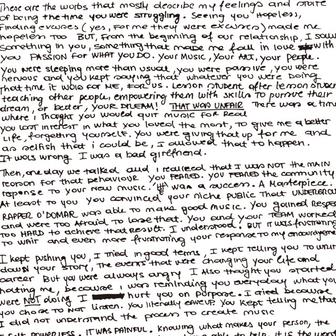 These are the words that mostly describe my feelings and state
of being the time you were struggling. Seeing you hopeless,
finding excuses (yes, for me they were excuses) made me
hopeless too. BUT, from the beginning of our relationship, I saw
something in you, something that made me fall in love with
you. PASSION FOR WHAT YOU DO. YOUR MUSIC, YOUR ART, your people.
You were sleeping more than usual, you were passive, you were
nervous and you kept saying that whatever you were doing
that time it was for me, for us. Lesson student after lesson student
teaching other people, empowering them with skills to pursue their
dream, or better, YOUR DREAM! THAT WAS UNFAIR. There was a time
where I thought you would quit music for real
You lost interest in what you loved the most, to give me a better
life, forgetting yourself. You were giving that up for me and
as selfish that I could be, I allowed that to happen.
It was wrong. I was a bad girlfriend.
Then, one day we talked, and I realised that I was NOT THE MAIN
reason for that behaviour. You feared. You feared the community
response to your new music. It was a success. A Masterpiece.
At least to you. You convinced your niche public that UNDERGROUND
RAPPER O'DOMAR was able to make good music. You gained respect
and were too afraid to lose that. You and your TEAM worked
too HARD to achieve that result. I understood. But it was frustrating
to wait and even more frustrating your response to my encouragement
I kept pushing you, I tried in good terms, I kept telling you to write
down your story. The events that were changing your life and
career. But you were always angry. I also thought you started
hating me, because I was reminding you everyday what you
were NOT doing. I hurt you on purpose. I cried because
you chose to not listen. You literally
I did not understand the process to create music
powerless. It was painful. Knowing what makes your person,